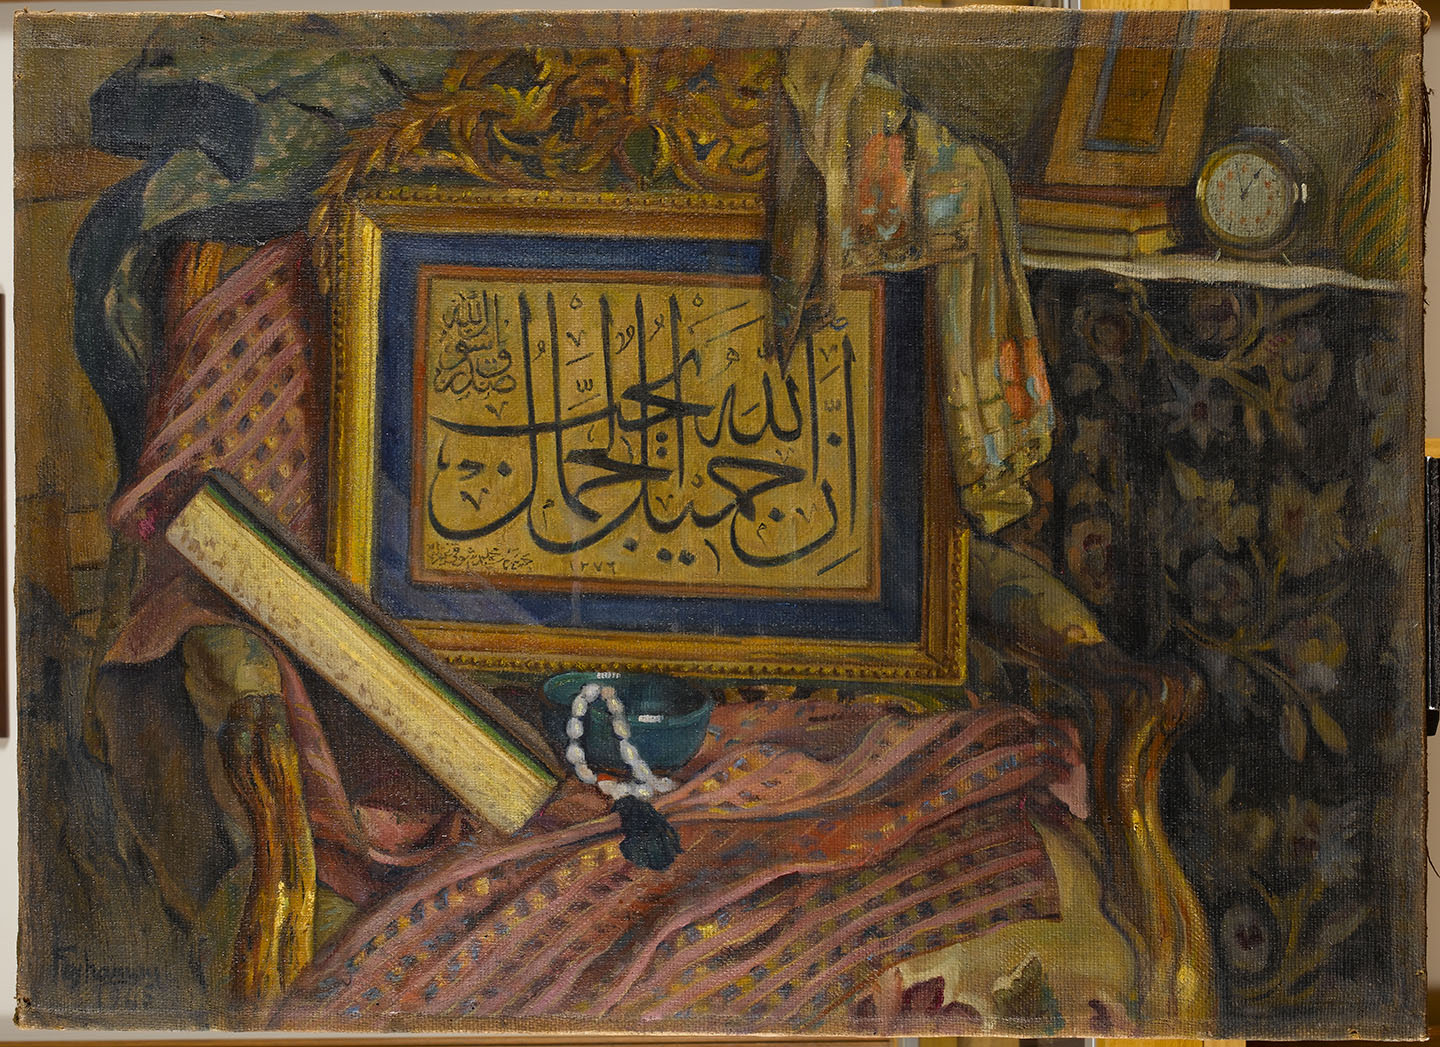 اِنَّ اللّٰهَ جَمِيلٌ يُحِبُّ الْجَمَالَ
صدق رسول الله
محمد شوقى
١٢٧٦
Feyhaman